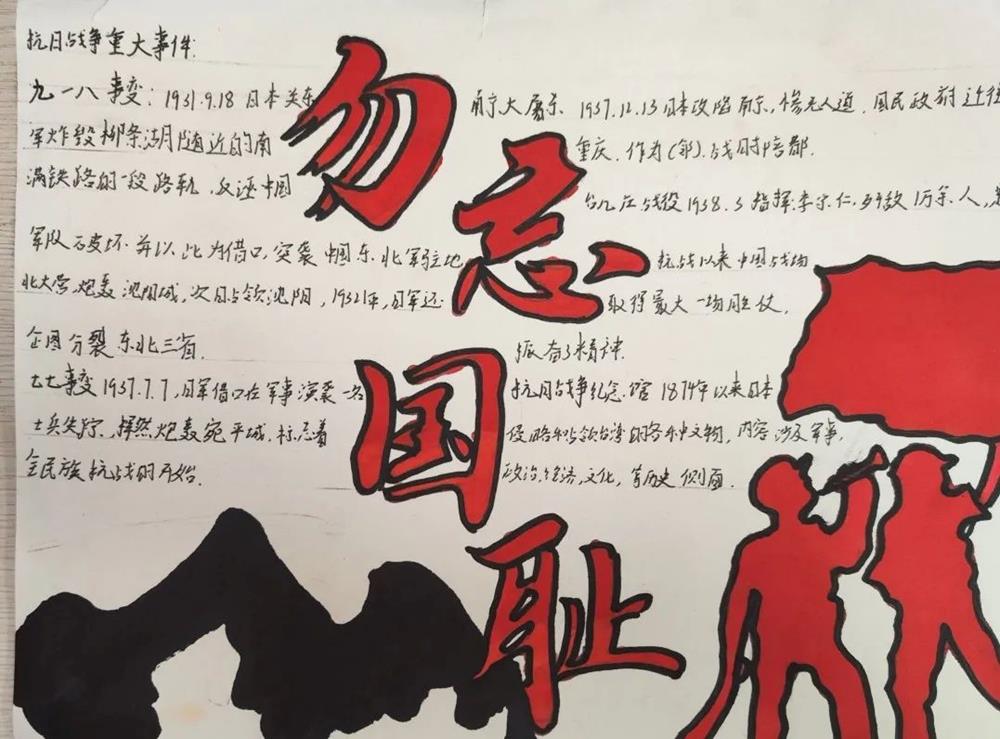 抗日战争重大事件:
九一八事变: 1931.9.18 日本关东
军炸毁柳条湖月随近的南
满铁路的一段路轨,反诬中国
军队破坏.并以此为借口,突袭中国东北军驻地
北大营,炮轰沈阳城,次日占领沈阳,1932年,日军还
企图分裂东北三省.
七七事变1937.7.7,日军借口在军事演袭一名
士兵失踪.悍然炮轰宛平城.标志着
全民族抗战的开始.
勿忘国耻
南京大屠杀.1937.12.13日本攻陷南京,惨无人道.国民政府迁往
重庆.作为(邻).战时陪都.
台儿庄战役1938.3指挥:李宗仁,歼敌1万余人,
抗战以来中国战场
取得最大一场胜仗,
振奋了精神.
抗日战争纪念馆1874年以来日本
侵略和占领台湾的各文物,内容涉及军事,
政治.经济,文化,等历史侧面.